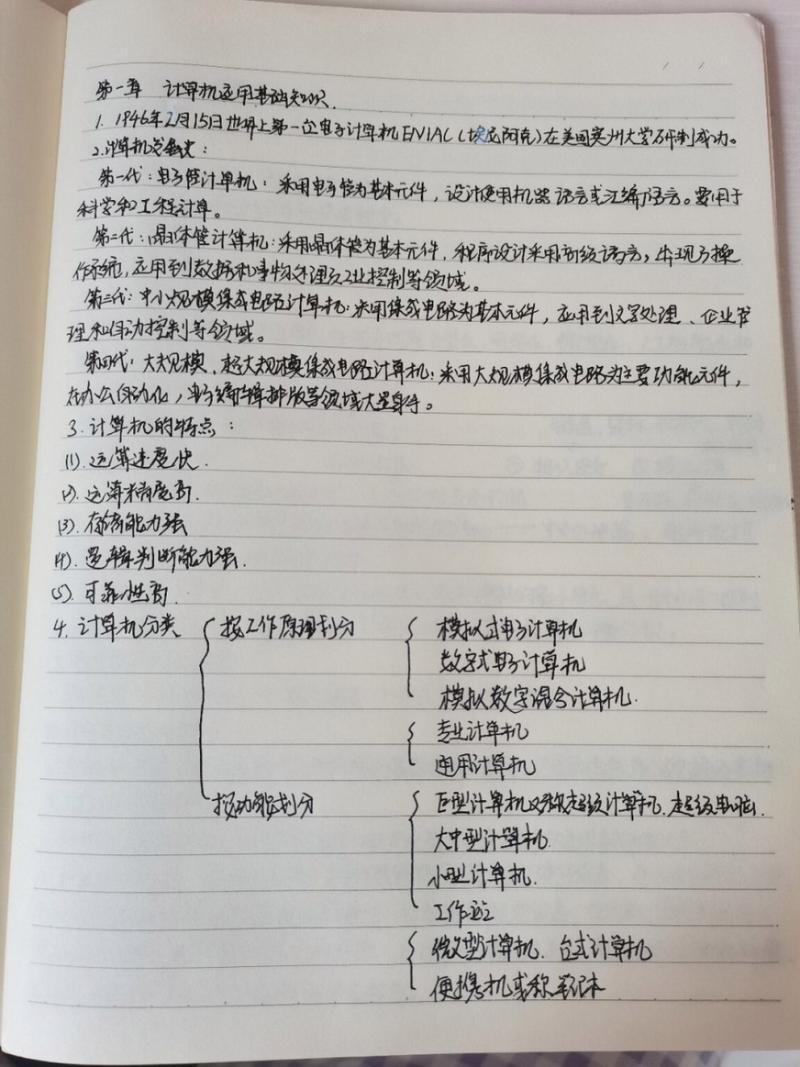 第一章 计算机运用基础知识.
1. 1946年2月15日世界上第一位电子计算机ENIAC(埃尼阿克)在美国宾州大学研制成功。
2.计算机发展史:
第一代:电子管计算机:采用电子管为基本元件,设计使用机器语言或汇编语言。要用于
科学和工程计算。
第二代:晶体管计算机:采用晶体管为基本元件,程序设计采用高级语言,出现了操
作系统,应用到数据和事物处理及工业控制等领域。
第三代:中小规模集成电路计算机:采用集成电路为基本元件,应用到文字处理、企业管
理和自动控制等领域。
第四代:大规模、超大规模集成电路计算机:采用大规模集成电路为主要功能元件,
在办公自动化,电子编辑排版等领域大显身手。
3.计算机的特点:
(1).运算速度快.
(2).运算精度高.
(3).存储能力强
(4).逻辑判断能力强.
(5).可靠性高.
4.计算机分类 按工作原理划分 模拟式电子计算机
数字式电子计算机
模拟数字混合计算机.
专业计算机
通用计算机
按功能划分 巨型计算机又称超级计算机、超级电脑.
大中型计算机.
小型计算机.
工作站
微型计算机、台式计算机
便携机或称笔记本